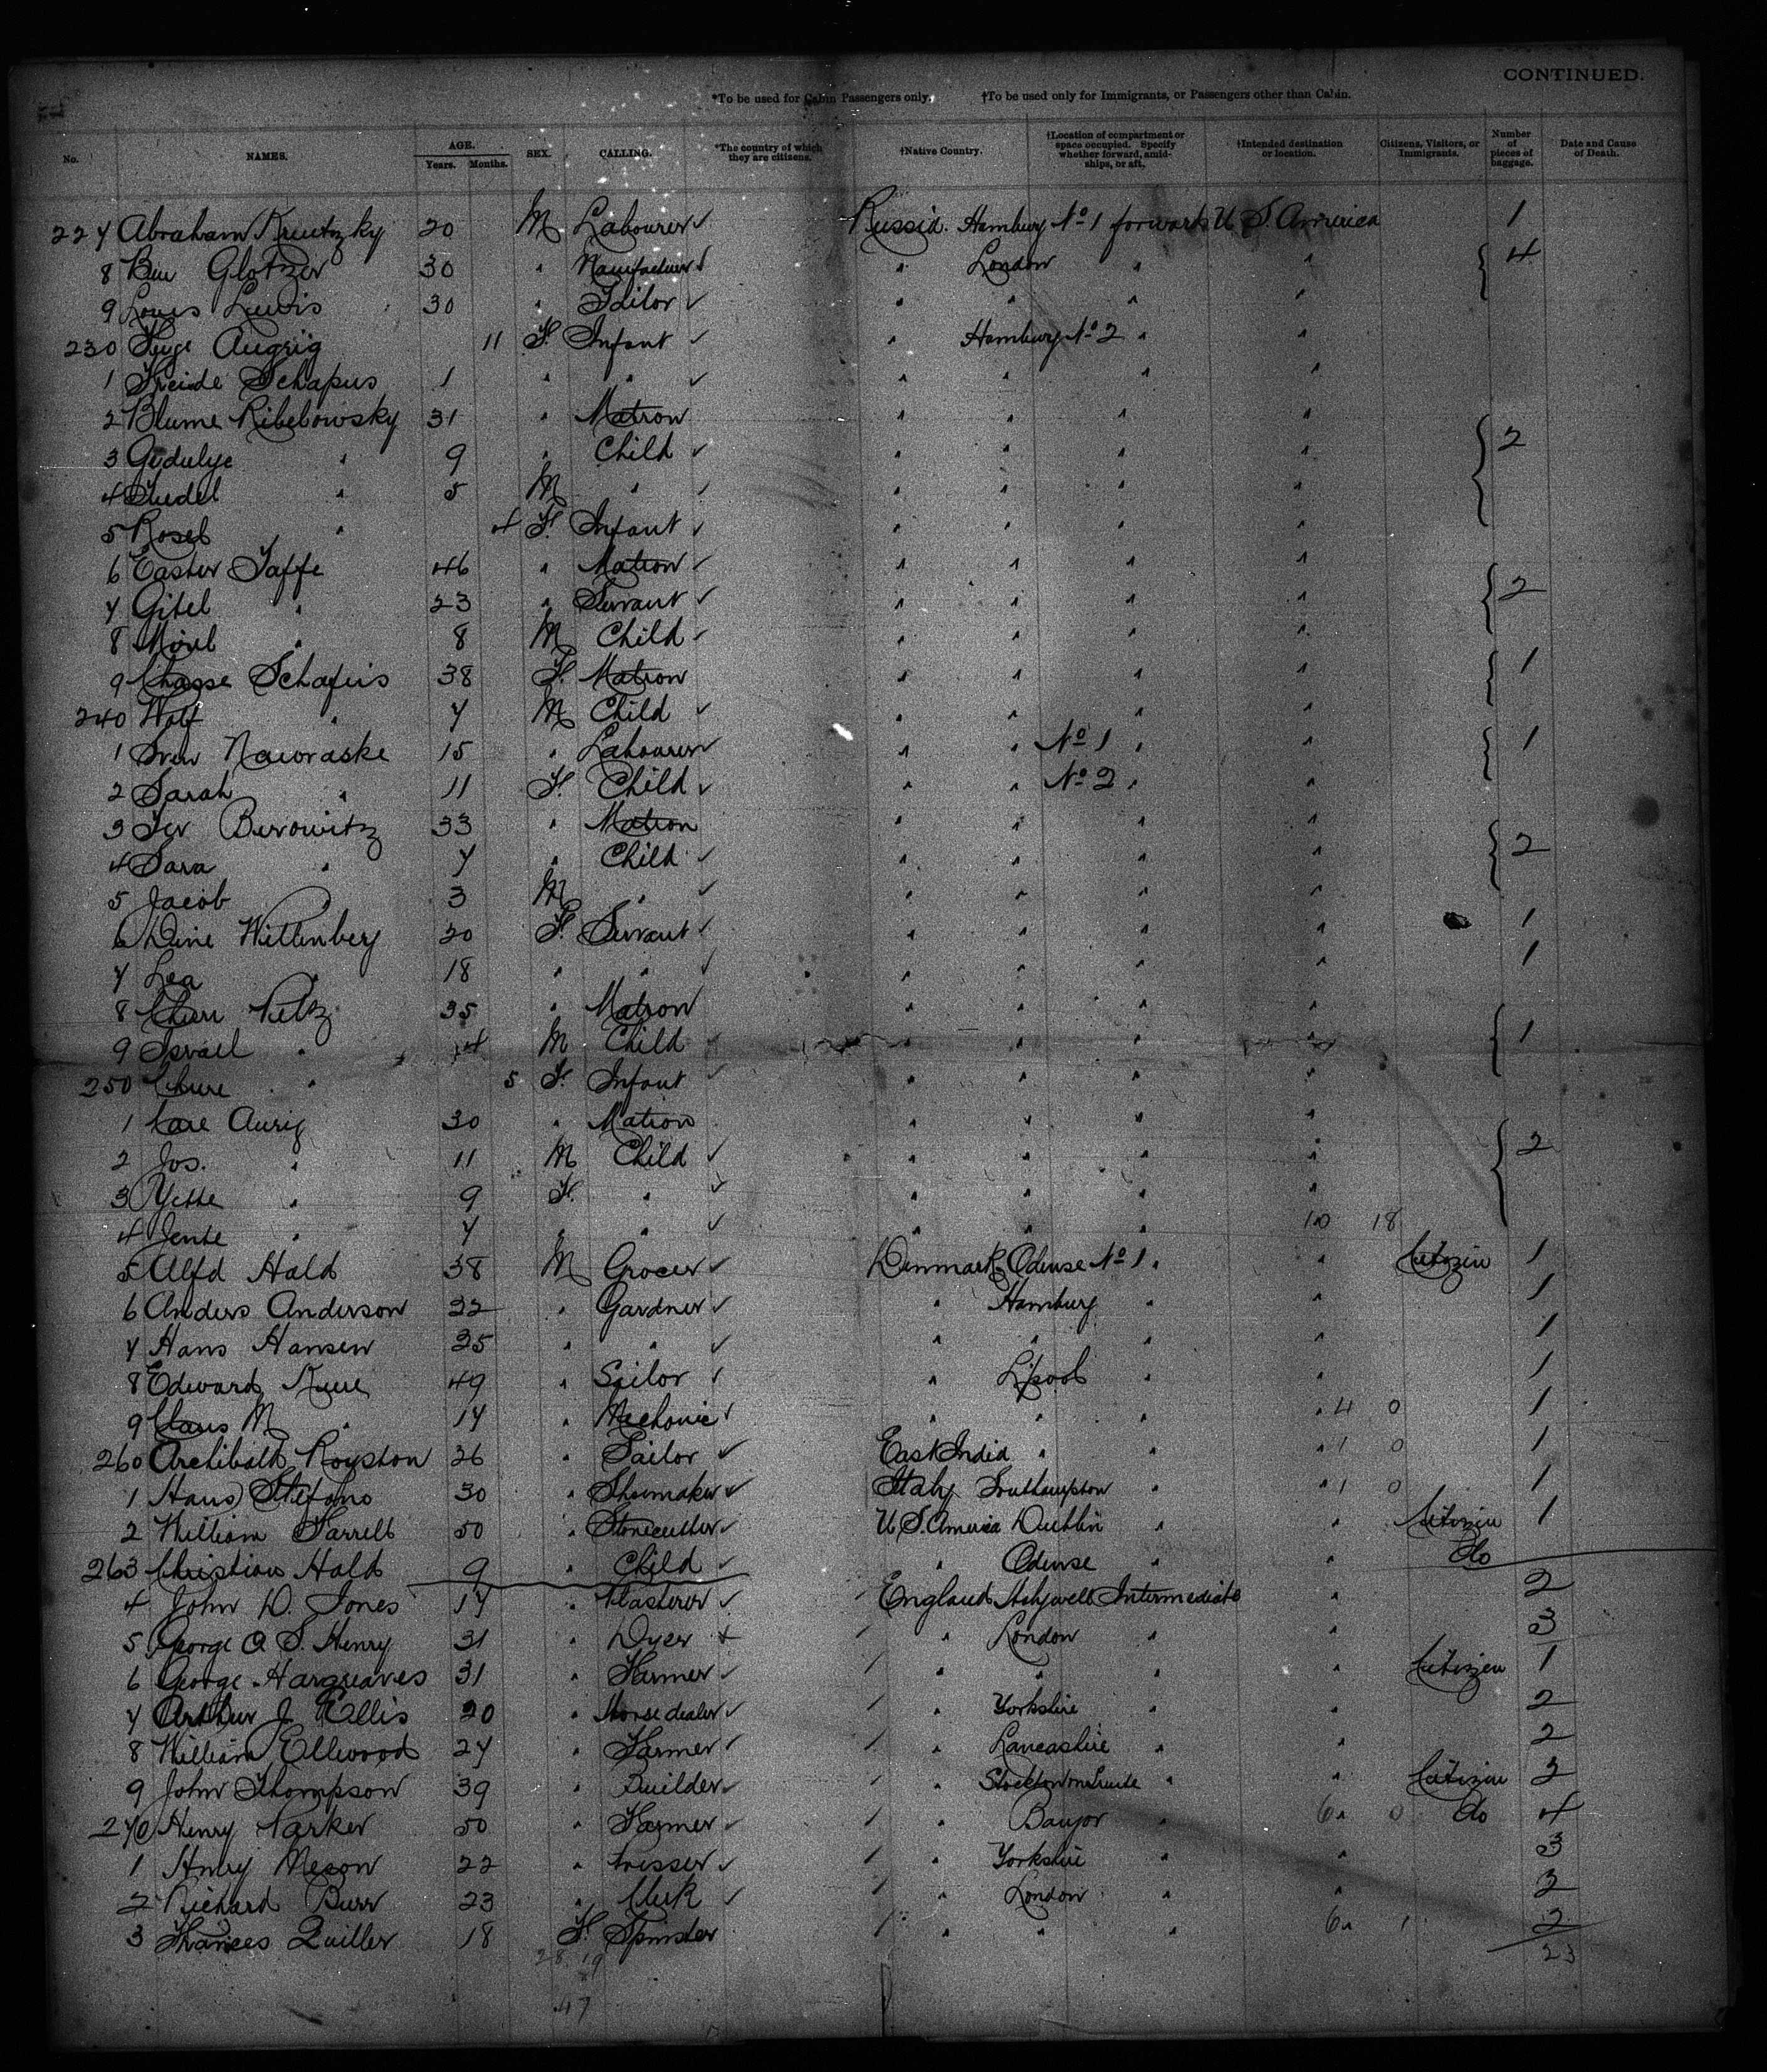 CONTINUED.
*To be used for Cabin Passengers only. †To be used only for Immigrants, or Passengers other than Cabin.
No. NAMES. AGE. Years. Months. SEX. CALLING. *The country of which they are citizens. †Native Country. †Location of compartment or space occupied. Specify whether forward, amidships, or aft. †Intended destination or location. Citizens, Visitors, or Immigrants. Number of pieces of baggage. Date and Cause of Death.
227 Abraham 20 M Labourer Russia. Hamburg No 1 forward U S. America 1
8 Glotzer 30 " London " " 4
9 Louis Lewis 30 " Tailor " " " "
230 11 F. Infant " Hamburg No 2 " "
1 Freide Schapus 1 " " " " " "
2 Blume Ribebowsky 31 " Matron " " " "
3 " 9 " Child " " " " 2
4 " 5 M " " " " "
5 " 4 F. Infant " " " "
6 Easter Jaffe 46 " Matron " " " "
7 Gitel " 23 " Servant " " " " 2
8 " 8 M Child " " " "
9 38 F. Matron " " " " 1
240 Wolf " 7 M Child " " " "
1 15 " Labourer " " No 1 " " 1
2 Sarah " 11 F. Child " " No 2 " "
3 Berowitz 33 " Matron " " " "
4 Sara " 7 " Child " " " " 2
5 Jacob " 3 M " " " " "
6 Dine Wittenberg 20 F. Servant " " " " 1
7 Lea " 18 " " " " " " 1
8 35 " Matron " " " "
9 Israel " M Child " " " " 1
250 " 5 F. Infant " " " "
1 30 " Matron " " " "
2 Jos. " 11 M Child " " " " 2
3 Yette " 9 F. " " " " "
4 Jente " 7 " " " " " 10 18
5 Alfd Hald 38 M Grocer Denmark Odense No 1 " " Citizen 1
6 Anders Anderson 22 " Gardner " Hamburg " " 1
7 Hans Hansen 25 " " " " " " 1
8 Edward 49 " Sailor " L'pool " " 1
9 Claus M " 17 " Mechanic " " " " 4 0 1
260 Archibald Royston 26 " Sailor East India " " " 1 0 1
1 Hans Stefano 30 " Shoemaker Italy Southampton " " 1 0 1
2 William Farrell 50 " Stonecutter U S. America Dublin " " Citizen 1
263 Christian Hald 9 " Child " Odense " " do
4 John D. Jones 17 " Plasterer England Intermediate " 2
5 George A S. Henry 31 " Dyer " London " " 3
6 George Hargreaves 31 " Farmer " " " " Citizen 1
7 Arthur J Ellis 20 " Horse dealer " Yorkshire " " 2
8 William Ellwood 27 " Farmer " Lancashire " " 2
9 John Thompson 39 " Builder " " " Citizen 2
270 Henry Parker 50 " Farmer " Bangor " 6 " 0 do 4
1 22 " " Yorkshire " " 3
2 Richard Burr 23 " Clerk " London " " 2
3 Frances Quiller 18 F. Spinster " " " 6 " 1 2
28 19 23
47